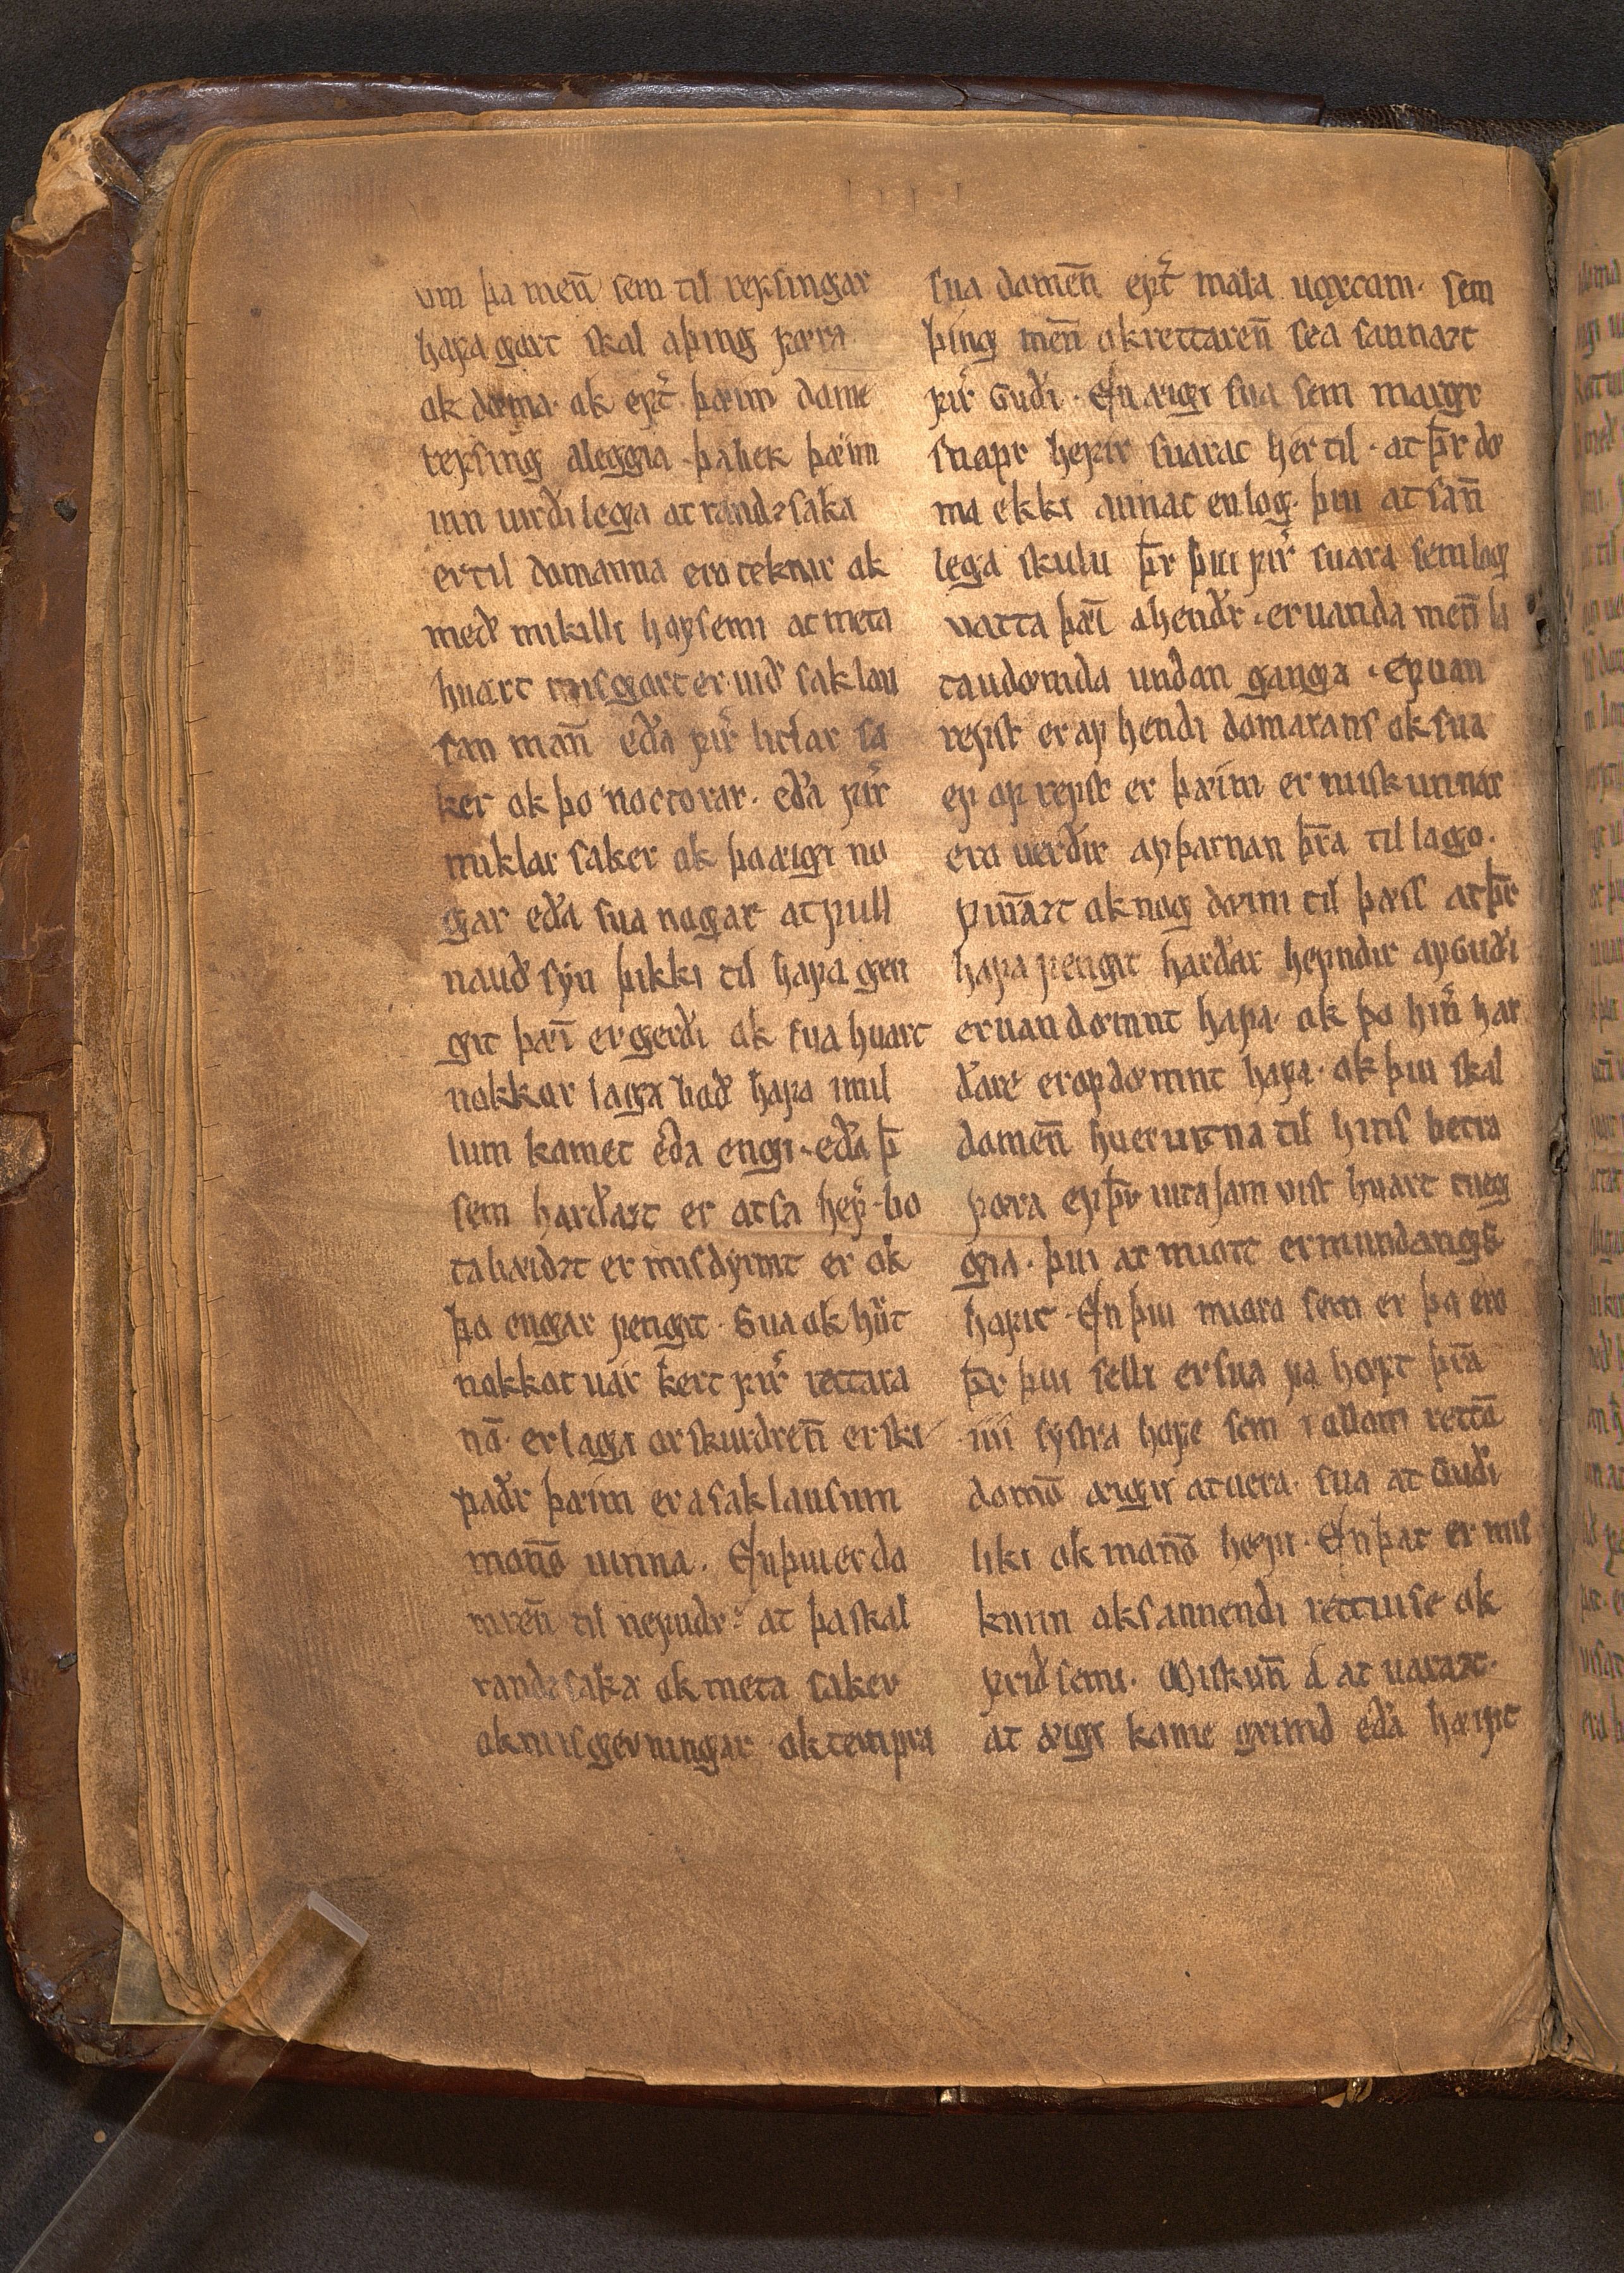 um þa men̅ sem til refsingar
hafa gort skal a þing fœra
ok dœma. ok ept̛ þæim dome
refsing aleggia. þa hek þæim
uirdilega at randꝛsaka
er til domanna ero teknir ok
med mikilli hofsemi at meta
huart misgort er uid saklau
san man̅ eda fir̛ litlar sa
ker ok þo noctorar. eda fir̛
miklar saker ok þo æigi no
gar eda sua nogar at full
naudsyn þikki til hafa gen
git þæi̅ er gerdi ok sua huart
nokkor laga bod hafa imil
lum komet eda engi. eda þ̅
sem hardaꝛt er at sa hef̛ bo
ta bæidꝛt er misdyrmt er ok
þo engar fengit. Sua ok hưt
nokkot uar kert fir̛ rettara
no̅. er laga orskurdren̅ er ski
padr þæim er a saklausum
mon̅o uinna. En þui er do
mren̅ til nefndr at þa skal
randꝛsaka ok meta saker
ok misgerningar ok tempra
sua domen̅ ept̛ mala uoxtum. sem
þing men̅ ok rettaren̅ sea sannaꝛt
fir̛ Gudi. En æigi sua sem margr
snapr hefir suarat her til. at þr̅ dœ
ma ekki annat en log. þui at san̅
lega skulu þr̅ þui fir̛ suara sem log
uatta þæi̅ a hendr. er uanda men̅ la
ta udœmda undan ganga. Ef uan
refst er af hendi domarans ok sua
ef of refst er þæim er miskunnar
ero uerdir af þarnan þr̅a til lago.
ok nog dœmi til þæss at þr̅
hafa fengit hardar hefndir af Gudi
er uandœmnt hafa. ok þo hin̛ har
dare er ofdœmnt hafa. ok þui skal
domen̅ hueruitna til hins betra
fœra ef þr̅ uita iam uist huart tueg
gia. þui at miott er mundangs
hofit. En þui miora sem er þa ero
þr̅ þui selli er sua fa hoft þr̅a
iiii systra hofe sem i ollom retto̅
domo̅ æigu at uera. sua at Gudi
liki ok mono̅ hœfui. En þat er mis
kunn ok sannendi rettuise ok
fridsemi. Miskun̅ a at uaraꝛt.
at æigi kome grimd eda hæipt